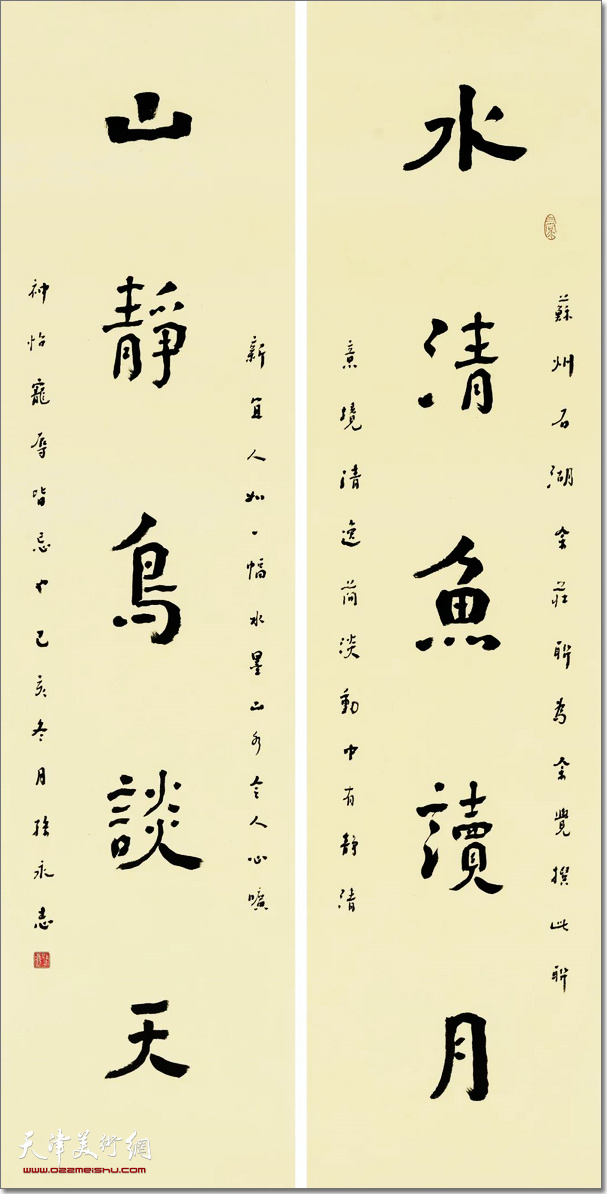 水清魚讀月
蘇州石湖余莊聯為余覺撰此聯
意境清逸簡淡動中有静清
山靜鳥談天
新宜人如一幅水墨山水令人心曠
神怡寵辱皆忘也己亥冬月孫永志
天津美術網
www.022meishu.com